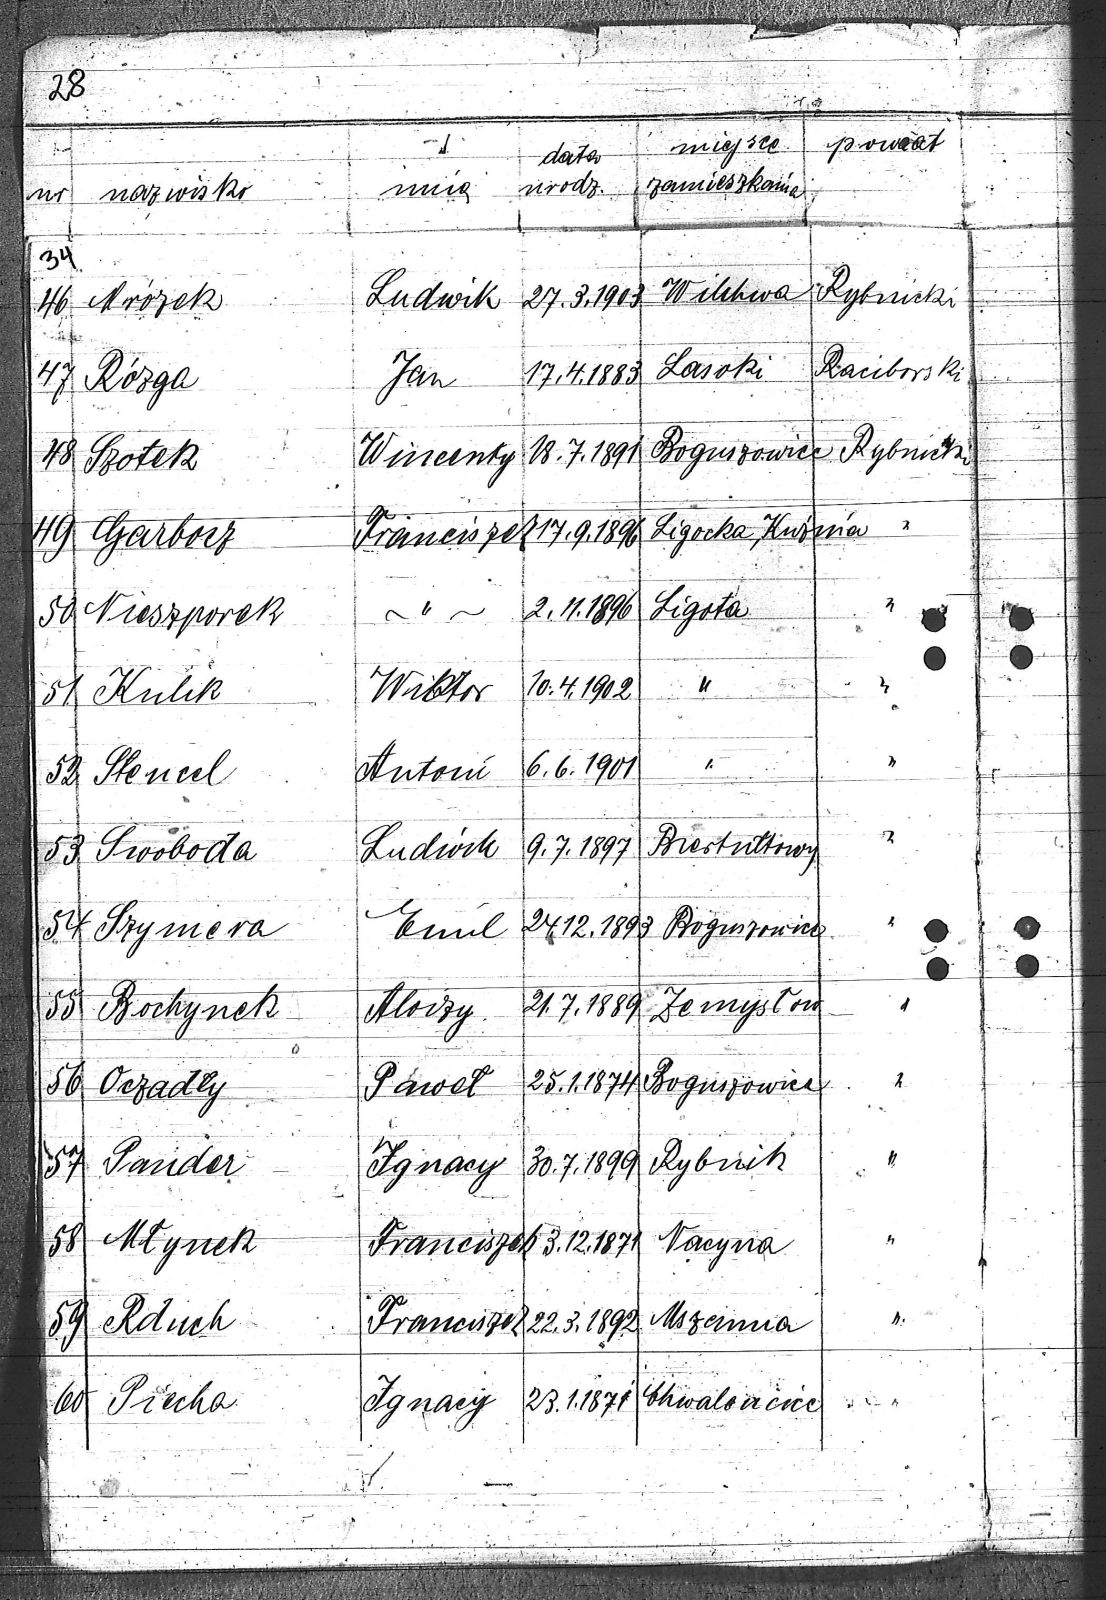 28
nr nazwisko imię data urodz. miejsce zamieszkania powiat
34
46 Mrózek Ludwik 27.3.1903 Wilchwa Rybnicki
47 Rózga Jan 17.4.1883 Lasoki Raciborski
48 Szotek Wincenty 18.7.1891 Boguszowice Rybnicki
49 Garbocz Franciszek 17.9.1896 Ligocka Kuźnia "
50 Nieszporek ~ " ~ 2.11.1896 Ligota "
51 Kulik Wiktor 10.4.1902 " "
52 Stencel Antoni 6.6.1901 " "
53 Swoboda Ludwik 9.7.1897 Biertultowy "
54 Szymera Emil 24.12.1893 Boguszowice "
55 Bochynek Alojzy 21.7.1889 Zemysłow "
56 Oczadły Paweł 25.1.1874 Boguszowice "
57 Pander Ignacy 30.7.1899 Rybnik "
58 Młynek Franciszek 3.12.1871 Nacyna "
59 Rduch Franciszek 22.3.1892 Mszanna "
60 Piecha Ignacy 23.1.1871 Chwalowice "